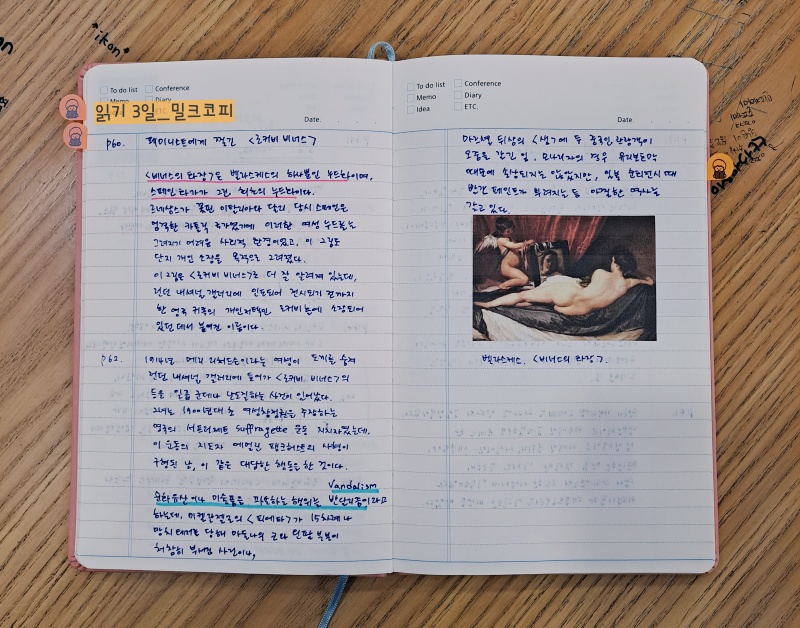 "ikon"
To do list
Conference
Memo
Diary
ETC.
읽기 3일_밀크코피
Date.
p60. 페미니스트에게 찢긴 <로커비 비너스>
<비너스의 화장>은 벨라스케스의 하나뿐인 누드화이며,
스페인 화가가 그린 최초의 누드화이다.
르네상스가 꽃핀 이탈리아와 달리 당시 스페인은
엄격한 카톨릭 국가였기에 이러한 여성 누드화는
그려지기 어려운 사회적 환경이었고, 이 그림도
단지 개인 소장용 목적으로 그려졌다.
이 그림은 <로커비 비너스>로 더 잘 알려져 있는데,
런던 내셔널 갤러리에 인도되어 전시되기 전까지
한 영국 귀족의 개인저택인 로커비홀에 소장되어
있던 데서 붙여진 이름이다.
p62. 1914년 메리 리처드슨이라는 여성이 도끼를 숨겨
런던 내셔널 갤러리에 들어가 <로커비 비너스>의
등을 일곱 군데나 난도질하는 사건이 있어났다.
그녀는 1900년대 초 여성참정권을 주장하는
영국의 서프러제트 suffragette 운동 지지자였는데,
이 운동의 지도자 에멀린 팽크허스트의 사형이
구형된 날, 이 같은 대담한 행동을 한 것이다.
Vandalism
문화유산이나 미술품을 파손하는 행위는 반달리즘이라고
하는데, 미켈란젤로의 <피에타>가 15차례나
망치 테러를 당해 마돈나의 코와 왼팔 부분이
처참히 부서진 사건이나,
To do list
Conference
Memo
Diary
Idea
ETC.
Date.
마르셀 뒤샹의 <샘>에 두 중국인 관광객이
오줌을 갈긴 일, 모나리자의 경우 유리보호막
때문에 손상되지는 않았지만, 일본 순회전시 때
빨간 페인트가 뿌려지는 등 아찔한 역사를
갖고 있다.
벨라스케스, <비너스의 화장>.